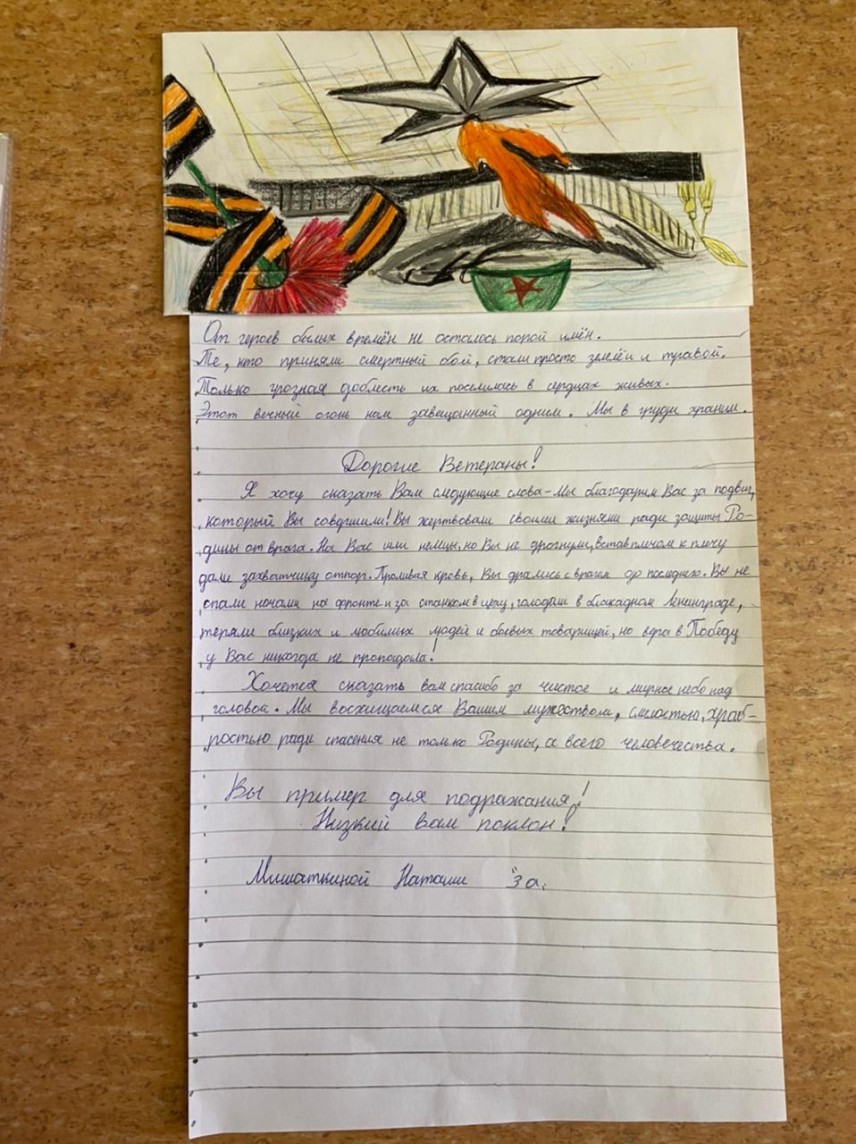 От героев былых времён не осталось порой имён.
Те, кто приняли смертный бой, стали просто землёй и травой.
Только грозная доблесть их поселилась в сердцах живых.
Этот вечный огонь нам завещанный одним. Мы в груди храним.
Дорогие Ветераны!
Я хочу сказать Вам следующие слова - Мы благодарим Вас за подвиг,
который Вы совершили! Вы жертвовали своими жизнями ради защиты Ро-
дины от врага. На Вас шли немцы, но Вы не дрогнули, встав плечом к плечу
дали захватчику отпор. Проливая кровь, Вы дрались с врагом до последнего. Вы не
спали ночами на фронте и за станком в цеху, голодали в блокадном Ленинграде,
теряли близких и любимых людей и боевых товарищей, но вера в Победу
у Вас никогда не пропадала!
Хочется сказать вам спасибо за чистое и мирное небо над
головой. Мы восхищаемся Вашим мужеством, смелостью, храб-
ростью ради спасения не только Родины, а всего человечества.
Вы пример для подражания!
Низкий вам поклон!
Мишаткиной Наташи 3 а.